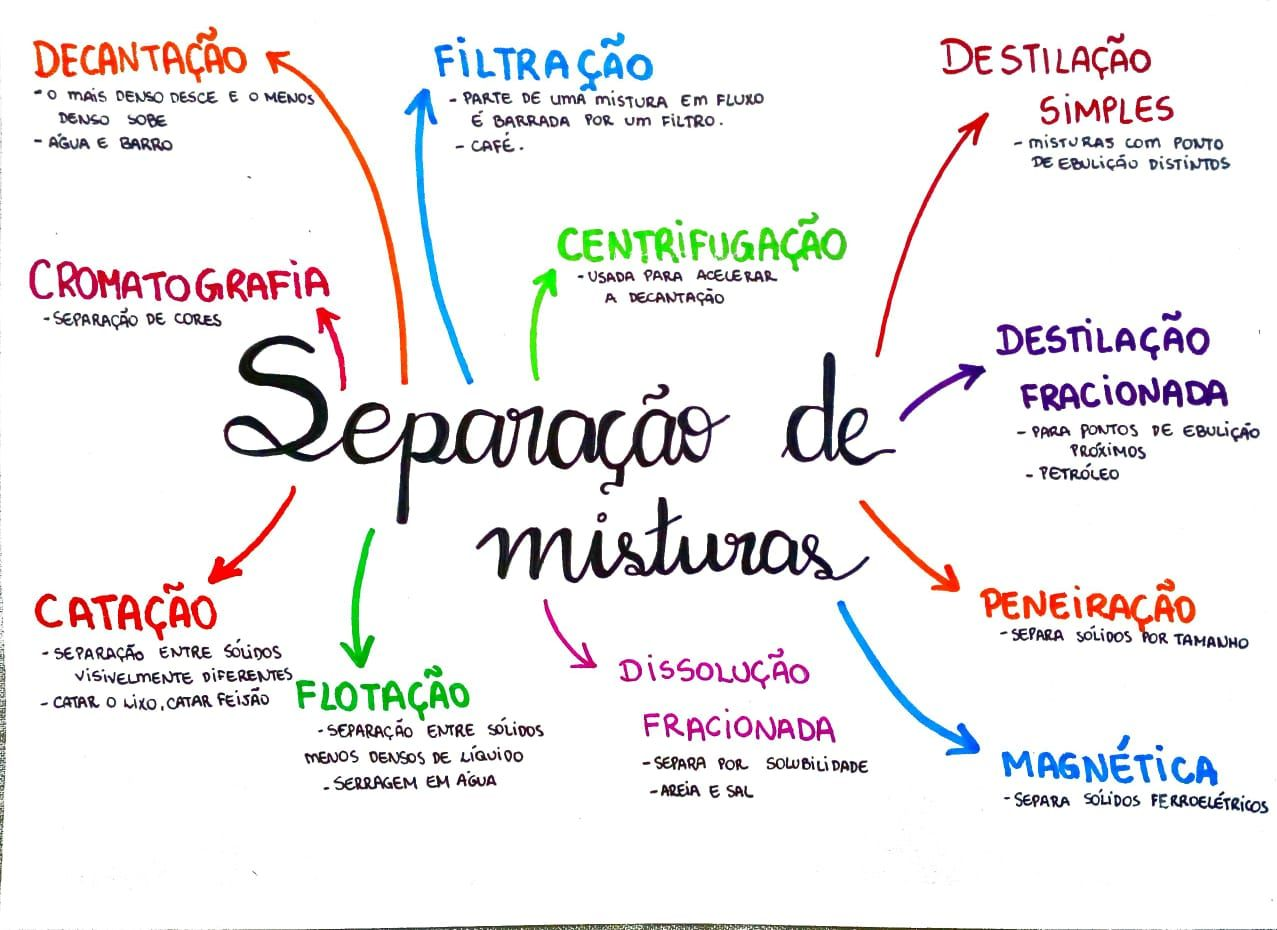 DECANTAÇÃO
- O MAIS DENSO DESCE E O MENOS
DENSO SOBE
- ÁGUA E BARRO
FILTRAÇÃO
- PARTE DE UMA MISTURA EM FLUXO
É BARRADA POR UM FILTRO.
- CAFÉ.
DESTILAÇÃO
SIMPLES
- MISTURAS COM PONTO
DE EBULIÇÃO DISTINTOS
CROMATOGRAFIA
- SEPARAÇÃO DE CORES
CENTRIFUGAÇÃO
- USADA PARA ACELERAR
A DECANTAÇÃO
DESTILAÇÃO
FRACIONADA
- PARA PONTOS DE EBULIÇÃO
PRÓXIMOS
- PETRÓLEO
Separação de
misturas
CATAÇÃO
- SEPARAÇÃO ENTRE SÓLIDOS
VISIVELMENTE DIFERENTES
- CATAR O LIXO, CATAR FEIJÃO
FLOTAÇÃO
- SEPARAÇÃO ENTRE SÓLIDOS
MENOS DENSOS DE LÍQUIDO
- SERRAGEM EM ÁGUA
DISSOLUÇÃO
FRACIONADA
- SEPARA POR SOLUBILIDADE
- AREIA E SAL
PENEIRAÇÃO
- SEPARA SÓLIDOS POR TAMANHO
MAGNÉTICA
- SEPARA SÓLIDOS FERROELÉTRICOS